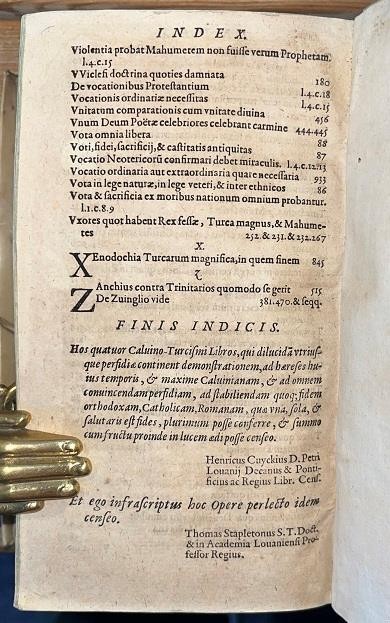 INDEX.
Violentia probat Mahumetem non fuisse verum Prophetam.
l.4.c.15
VViclefi doctrina quoties damnata 180
De vocationibus Protestantium l.4.c.18
Vocationis ordinariæ necessitas l.4.c.15
Vnitatum comparationis cum vnitate diuina 456
Vnum Deum Poëtæ celebriores celebrant carmine 444.445
Vota omnia libera 88
Voti, fidei, sacrificij, & castitatis antiquitas 87
Vocatio Neotericorũ confirmari debet miraculis. l.4.c.12.13
Vocatio ordinaria aut extraordinaria quare necessaria 933
Vota in lege naturæ, in lege veteri, & inter ethnicos 86
Vota & sacrificia ex moribus nationum omnium probantur.
l.1.c.8.9
Vxores quot habent Rex fessæ, Turca magnus, & Mahume-
tes 252. & 231. & 232.267
X.
XEnodochia Turcarum magnifica, in quem finem 845
Z
ZAnchius contra Trinitarios quomodo se gerit 515.
De Zuinglio vide 381.470. & seqq.
FINIS INDICIS.
Hos quatuor Caluino-Turcismi Libros, qui dilucidã vtrius-
que perfidiæ continent demonstrationem, ad hæreses hu-
ius temporis, & maxime Caluinianam, & ad omnem
conuincendam perfidiam, ad stabiliendam quoq; fidem
orthodoxam, Catholicam, Romanam, quæ vna, sola, &
salutaris est fides, plurimum posse conferre, & summo
cum fructu proinde in lucem edi posse censeo.
Henricus Cuyckius D. Petri
Louanij Decanus & Ponti-
ficius ac Regius Libr. Cens.
Et ego infrascriptus hoc Opere perlecto idem
censeo.
Thomas Stapletonus S.T. Doct.
& in Academia Louaniensi Pro-
fessor Regius.